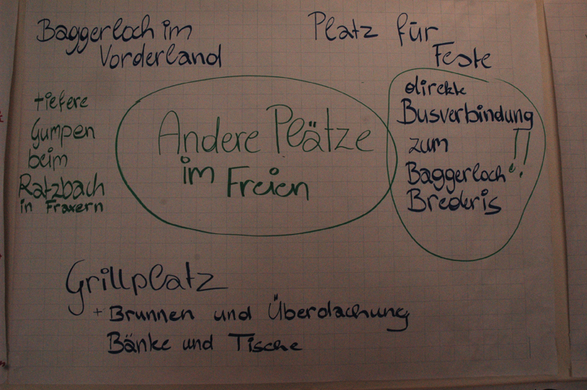 Baggerloch im
Vorderland
Platz für
Feste
tiefere
Gumpen
beim
Ratzbach
in Fraxern
Andere Plätze
im Freien
direkte
Busverbindung
zum !!
Baggerloch!
Brederis
Grillplatz
+ Brunnen und Überdachung
Bänke und Tische